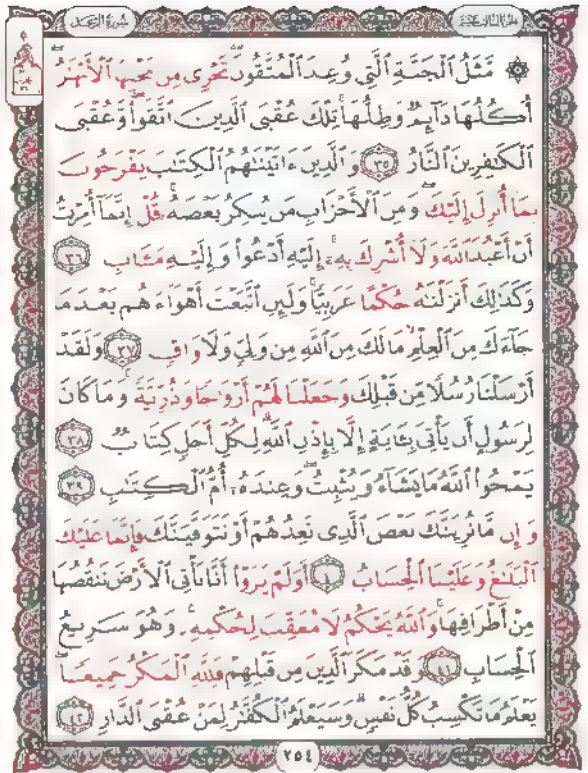 سُورَةُ الرَّعْدِ
۞ مَّثَلُ ٱلْجَنَّةِ ٱلَّتِي وُعِدَ ٱلْمُتَّقُونَ تَجْرِى مِن تَحْتِهَا ٱلْأَنْهَٰرُ
أُكُلُهَا دَآئِمٌ وَظِلُّهَا تِلْكَ عُقْبَى ٱلَّذِينَ ٱتَّقَوا۟ وَّعُقْبَى
ٱلْكَٰفِرِينَ ٱلنَّارُ ٣٥ وَٱلَّذِينَ ءَاتَيْنَٰهُمُ ٱلْكِتَٰبَ يَفْرَحُونَ
بِمَآ أُنزِلَ إِلَيْكَ وَمِنَ ٱلْأَحْزَابِ مَن يُنكِرُ بَعْضَهُۥ قُلْ إِنَّمَآ أُمِرْتُ
أَنْ أَعْبُدَ ٱللَّهَ وَلَآ أُشْرِكَ بِهِۦٓ إِلَيْهِ أَدْعُوا۟ وَإِلَيْهِ مَـَٔابِ ٣٦
وَكَذَٰلِكَ أَنزَلْنَٰهُ حُكْمًا عَرَبِيًّا وَلَئِنِ ٱتَّبَعْتَ أَهْوَآءَهُم بَعْدَمَا
جَآءَكَ مِنَ ٱلْعِلْمِ مَالَكَ مِنَ ٱللَّهِ مِن وَلِيٍّ وَلَا وَاقٍ ٣٧ وَلَقَدْ
أَرْسَلْنَا رُسُلًا مِّن قَبْلِكَ وَجَعَلْنَا لَهُمْ أَزْوَٰجًا وَذُرِّيَّةً وَمَاكَانَ
لِرَسُولٍ أَن يَأْتِىَ بِـَٔايَةٍ إِلَّا بِإِذْنِ ٱللَّهِ لِكُلِّ أَجَلٍ كِتَابٌ ٣٨
يَمْحُوا۟ ٱللَّهُ مَايَشَآءُ وَيُثْبِتُ وَعِندَهُۥٓ أُمُّ ٱلْكِتَٰبِ ٣٩
وَإِن مَّانُرِيَنَّكَ بَعْضَ ٱلَّذِى نَعِدُهُمْ أَوْ نَتَوَفَّيَنَّكَ فَإِنَّمَا عَلَيْكَ
ٱلْبَلَٰغُ وَعَلَيْنَا ٱلْحِسَابُ ٤٠ أَوَلَمْ يَرَوْا۟ أَنَّا نَأْتِى ٱلْأَرْضَ نَنقُصُهَا
مِنْ أَطْرَافِهَا وَٱللَّهُ يَحْكُمُ لَا مُعَقِّبَ لِحُكْمِهِۦ وَهُوَ سَرِيعُ
ٱلْحِسَابِ ٤١ وَقَدْ مَكَرَ ٱلَّذِينَ مِن قَبْلِهِمْ فَلِلَّهِ ٱلْمَكْرُ جَمِيعًا
يَعْلَمُ مَا تَكْسِبُ كُلُّ نَفْسٍ وَسَيَعْلَمُ ٱلْكُفَّٰرُ لِمَنْ عُقْبَى ٱلدَّارِ ٤٢
٢٥٤